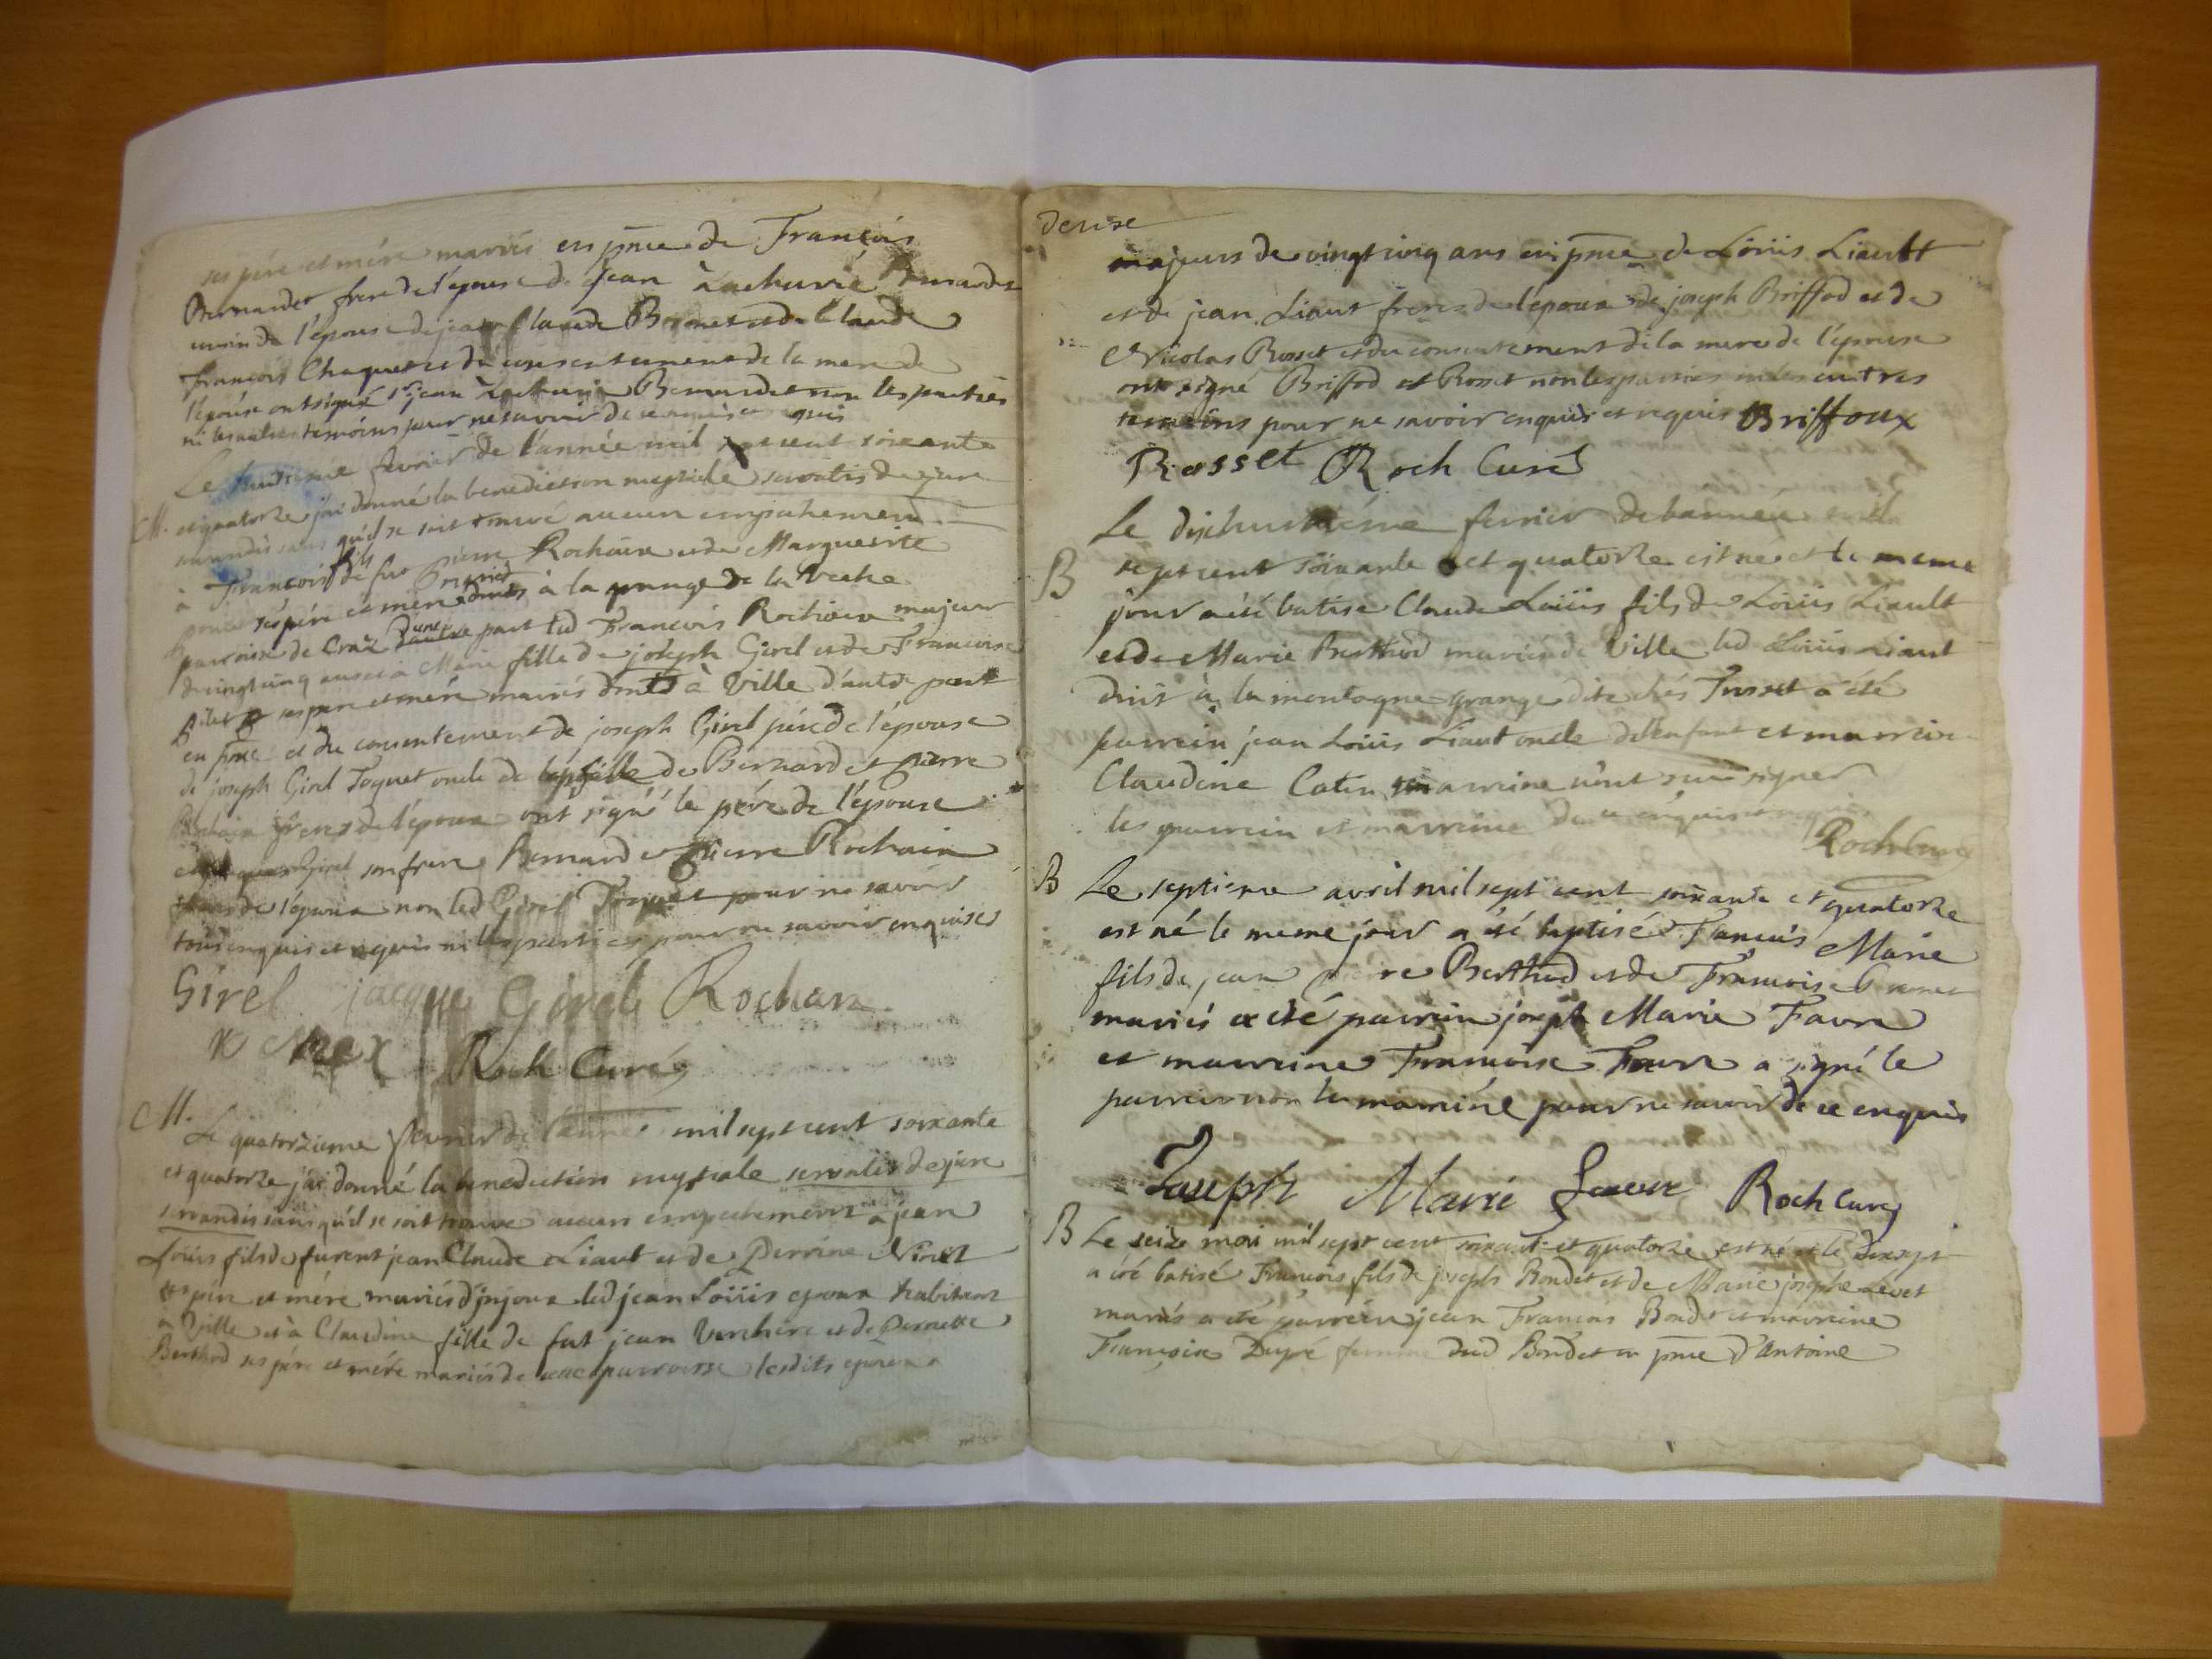 ses pére et mére mariés en pnce de François
Bernardet frere de l'épouse de Jean Zacharie Bernardet
cousin de l'épouse de jean Claude Bornet et de Claude
françois Chaquet et du consentement de la mere de
l'épouse ont signé Sr jean Zacharie Bernardet non les parties
ni les autres temoins pour ne savoir de ce enquis et quis
Le huitieme fevrier de l'année mil sept cent soixante
M. et quatorze j'ai donné la benediction nuptiale servatis de jure
servandis sans qu'il se soit trouvé aucun empechement
à François fils de fut pierre Rochaix et de Marguerite
ses pére et mere mariés dmts à la grange de la Veche
parroisse de Craz d'une part led François Rochaix majeur
de vingt cinq ans et à Marie fille de joseph Girel et de Francoise
ses pere et mére mariés dmts à Ville d'autre part
en pnce et du consentement de joseph Girel pére de l'épouse
de joseph Girel Toquet oncle de de Bernard et pierre
Rochaix freres de l'époux ont signé le pére de l'épouse
et jacques Girel son frere Bernard et pierre Rochaix
freres de l'époux non led Girel Toquet pour ne savoir
tous enquis et requis ni les parties pour ne savoir enquises
Girel jacque Girel Rochax
Roch Curé
M.
Le quatorzieme fevrier de l'année mil sept cent soixante
et quatorze j'ai donné la benediction nuptiale servatis de jure
servandis sans qu'il se soit trouvé aucun empechement à jean
Loüis fils de furent jean Claude Liaut et de Perrine Ninet
ses pére et mére mariés d'injoux led jean Loüis epoux habitant
à Ville et à Claudine fille de fut jean Verchere et de Pernette
Berthod ses pére et mére mariés de cette parroisse lesdits epoux
denise
majeurs de vingt cinq ans en pnce de Loüis Liault
et de jean Liaut freres de l'époux de joseph Briffod et de
Nicolas Rosset et du consentement de la mere de l'épouse
ont signé Briffod et Rosset non les parties ni les autres
temoins pour ne savoir enquis et requis Briffoux
Rosset Roch Curé
Le dixhuitiéme fevrier de l'année mil
B sept cent soixante et quatorze est né et le meme
jour a été batisé Claude Loüis fils de Loüis Liault
et de Marie Berthod mariés de Ville led Loüis Liaut
dmt à la montagne grange dite chés Trosset a été
parrein jean Loüis Liaut oncle de l'enfant et marreine
Claudine Catin marreine n'ont signer
les parrein et marreine de ce enquis
Roch Curé
B Le septieme avril mil sept cent soixante et quatorze
est né le meme jour a été baptisé François Marie
fils de jean Berthod et de Françoise
mariés a été parrein joseph Marie Favre
et marreine Francoise Favre a signé le
parrein non la marreine pour ne savoir de ce enquis
Joseph Marie Roch Curé
B Le seize mai mil sept cent soixante et quatorze est né et le dixsept
a été batisé François fils de joseph Bondet et de Marie josephe Levet
mariés a été parrein jean François Bondet et marreine
Françoise Dupré femme dud Bondet en pnce d'Antoine